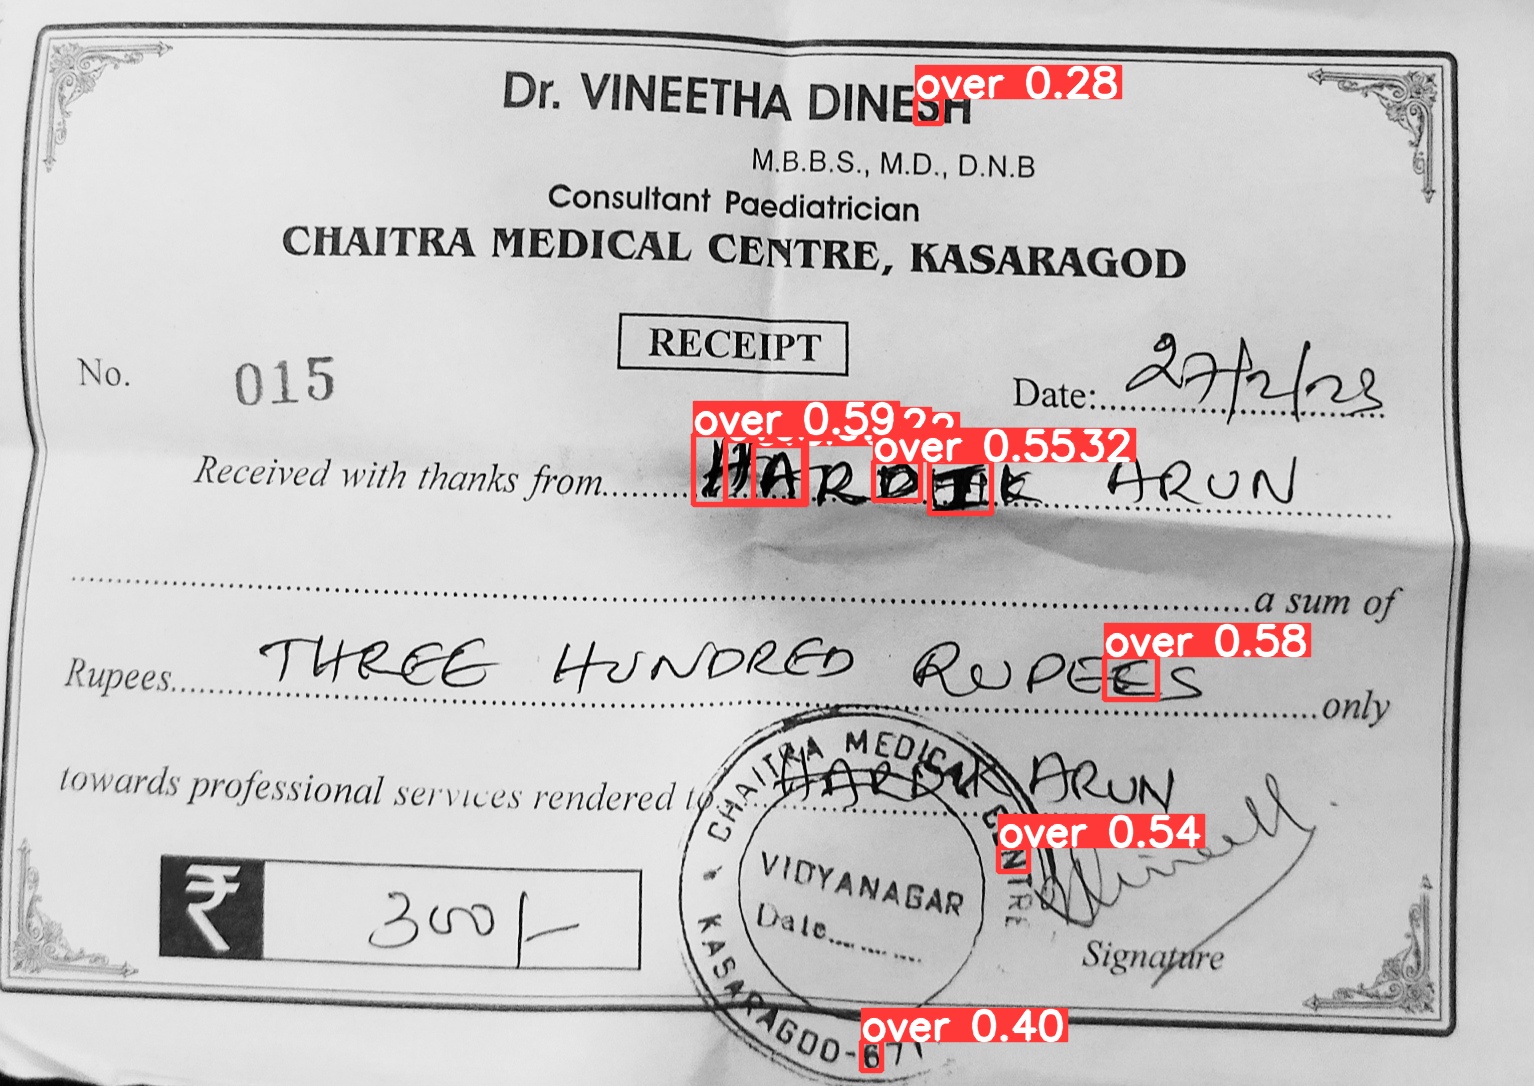 Dr. VINEETHA DINESH
over 0.28
M.B.B.S., M.D., D.N.B
Consultant Paediatrician
CHAITRA MEDICAL CENTRE, KASARAGOD
RECEIPT
No. 015
Date: 27/2/23
over 0.59
over 0.5532
Received with thanks from HARDIK ARUN
a sum of
over 0.58
Rupees THREE HUNDRED RUPEES only
towards professional services rendered to HARDIK ARUN
over 0.54
₹ 300/-
CHAITRA MEDICAL CENTRE
VIDYANAGAR
Date
KASARAGOD-671
Signature
over 0.40